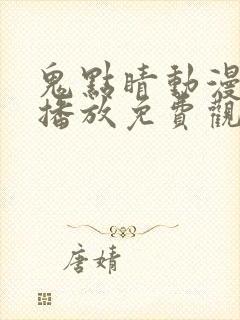 鬼點睛動漫
播放免費觀
唐婧